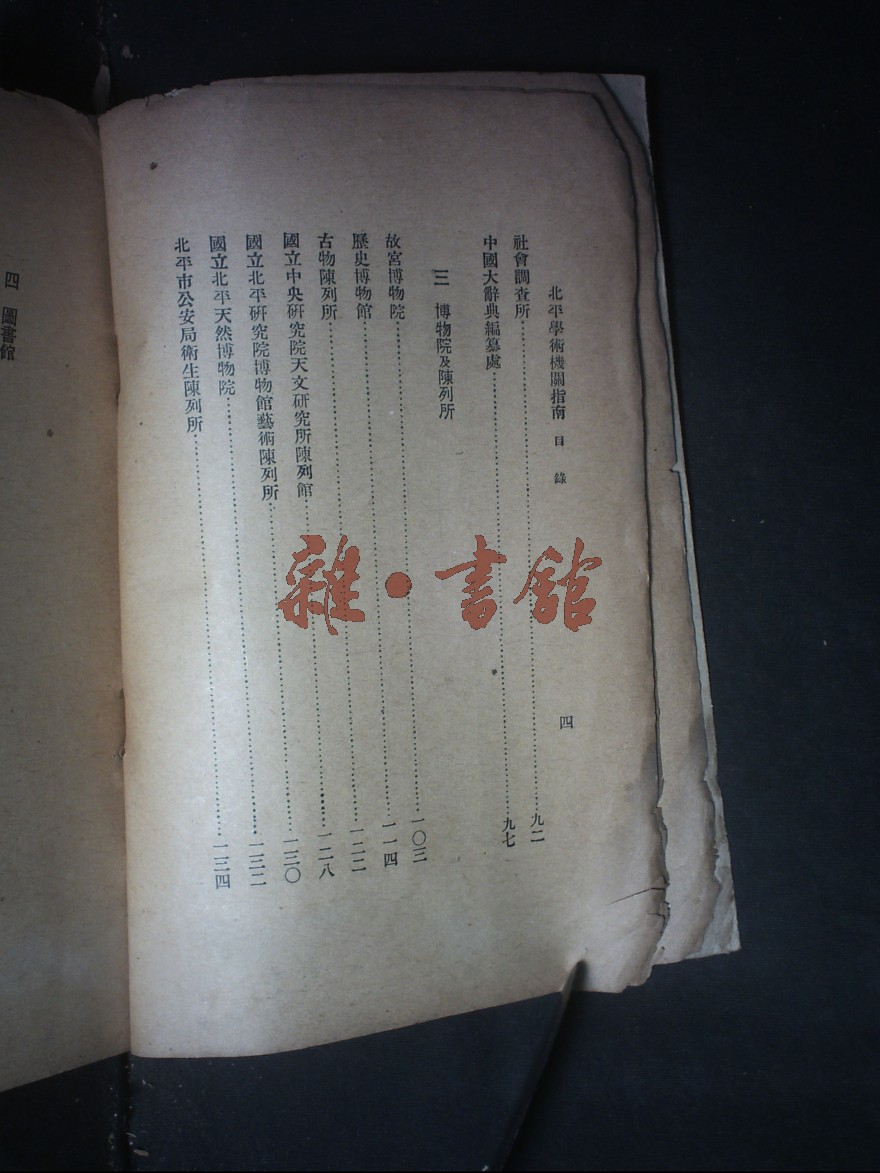 北平學術機關指南 目錄 四
社會調查所……九二
中國大辭典編纂處……九七
三 博物院及陳列所
故宮博物院……一〇三
歷史博物館……一一四
古物陳列所……一二二
國立中央研究院天文研究所陳列館……一二八
國立北平研究院博物館藝術陳列所……一三〇
國立北平天然博物院……一三二
北平市公安局衛生陳列所……一三四
四 圖書館
雜·書館